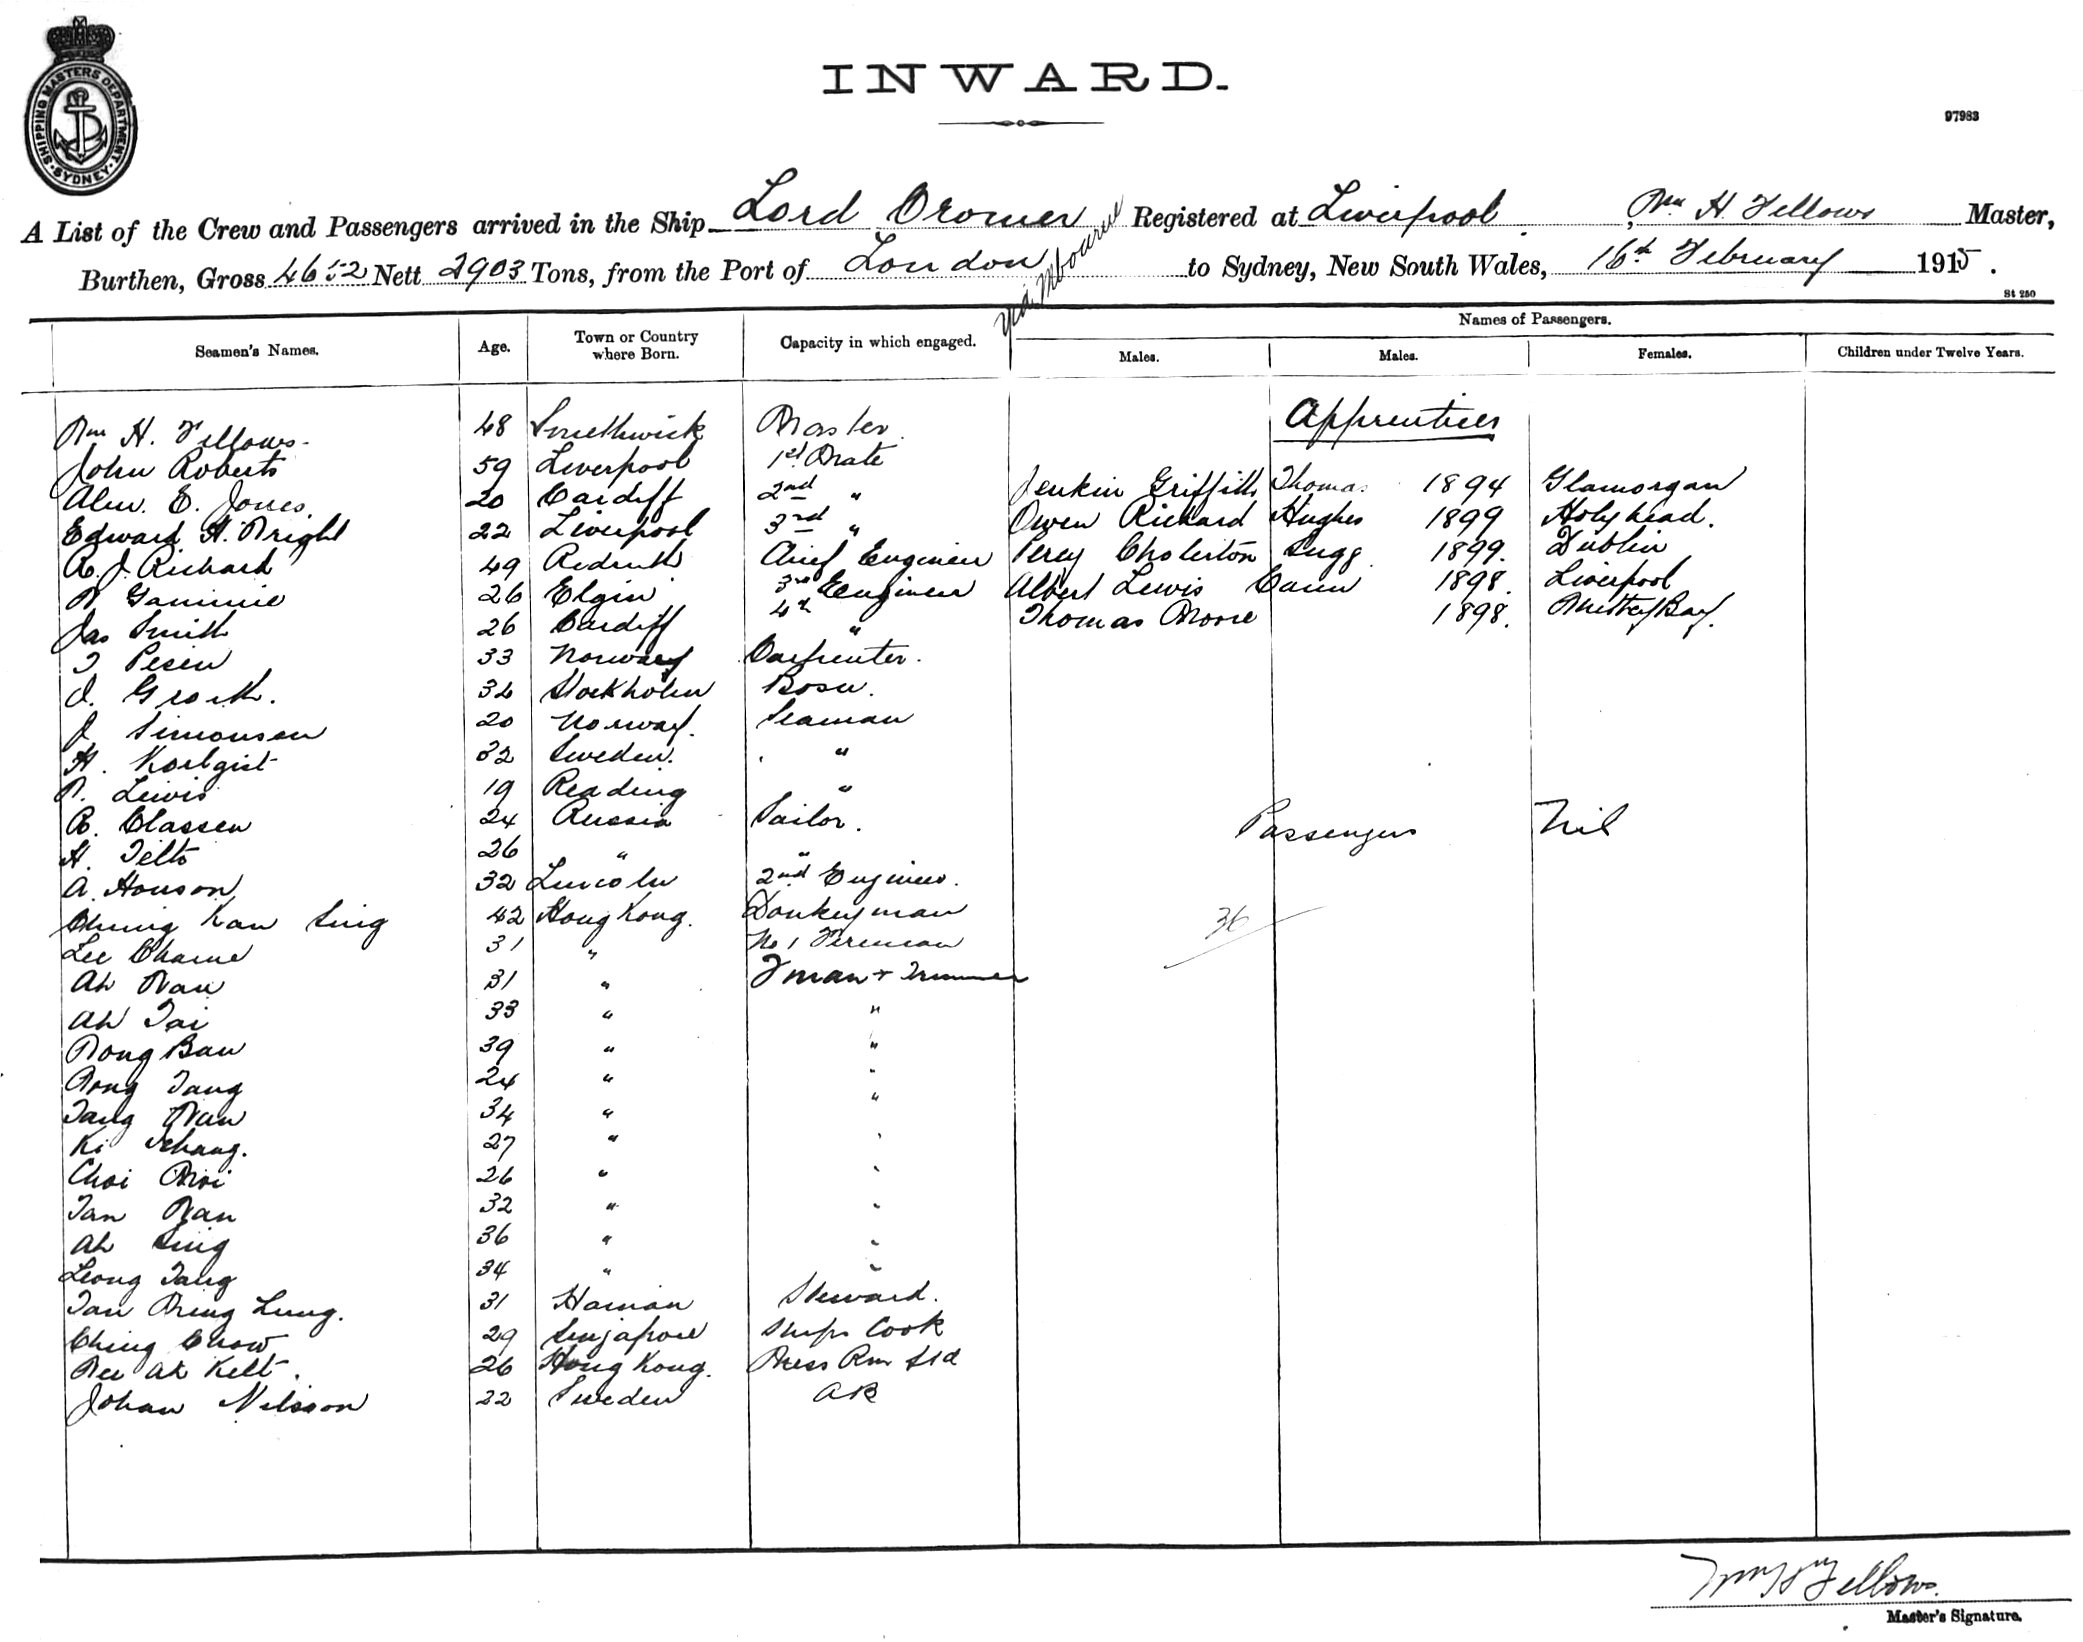 SHIPPING MASTERS DEPARTMENT
SYDNEY
INWARD.
97983
A List of the Crew and Passengers arrived in the Ship Lord Cromer Registered at Liverpool, Wm H. Fellows Master,
Burthen, Gross 4652 Nett 2903 Tons, from the Port of London via Mbourne to Sydney, New South Wales, 16th February 1915.
St 250
Names of Passengers.
Seamen's Names. Age. Town or Country where Born. Capacity in which engaged. Males. Males. Females. Children under Twelve Years.
Apprentices
Wm H. Fellows 48 Smethwick Master
John Roberts 59 Liverpool 1st Mate
Alex. E. Jones. 20 Cardiff 2nd " Jenkin Griffith Thomas 1894 Glamorgan
Edward H. Wright 22 Liverpool 3rd " Owen Richard Hughes 1899 Holyhead.
R. J. Richard 49 Redruth Chief Engineer Percy Cholerton Sugg 1899. Dublin
W Gammie 26 Elgin 3rd Engineer Albert Lewis Cann 1898. Liverpool
Jas Smith 26 Cardiff 4th " Thomas Moore 1898.
33 Norway Carpenter.
J. 34 Stockholm Bosn.
J Simonsen 20 Norway. Seaman
H. 32 Sweden. "
W. Lewis 19 Reading "
R. Classen 24 Russia Sailor. Passengers Nil
H. 26 " "
A. Houson 32 Lincoln 2nd Engineer.
Chung Kan Sing 42 Hong Kong. Donkeyman 36
Lee 31 " No 1 Fireman
Ah Wan 31 " Fman + Trimmer
Ah Tai 33 " "
Wong Bau 39 " "
Wong Tang 24 " "
Tang Wan 34 " "
Ki 27 " "
Choi Moi 26 " "
Tan Wan 32 " "
Ah Sing 36 " "
Leong Tang 34 " "
Tan Ming Lung. 31 Hainan Steward.
Ching Chow 29 Singapore Ships Cook
Wee Ah Kelt. 26 Hong Kong. Mess Rm Std
Johan Nilsson 22 Sweden AB
Wm H Fellows.
Master's Signature.